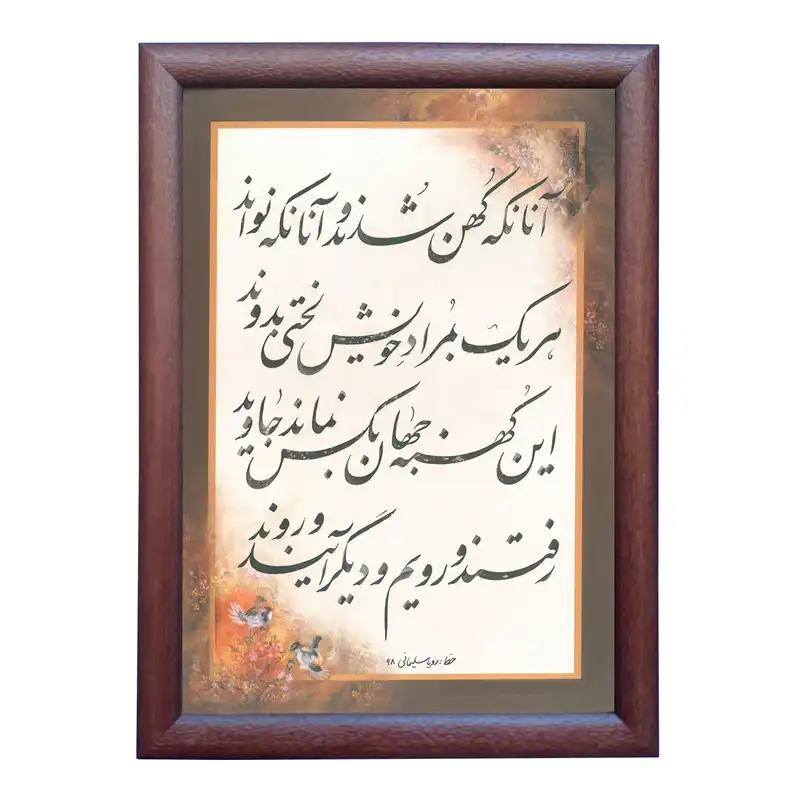 آنانکه کُهن شُدند و آنانکه نواند
هر یک بمُراد خویش لختی بدوند
این کُهنه جهان بکس نماند جاوید
رفتند و رویم و دیگر آیند و روند
خط : رویا سلیمانی ۹۸